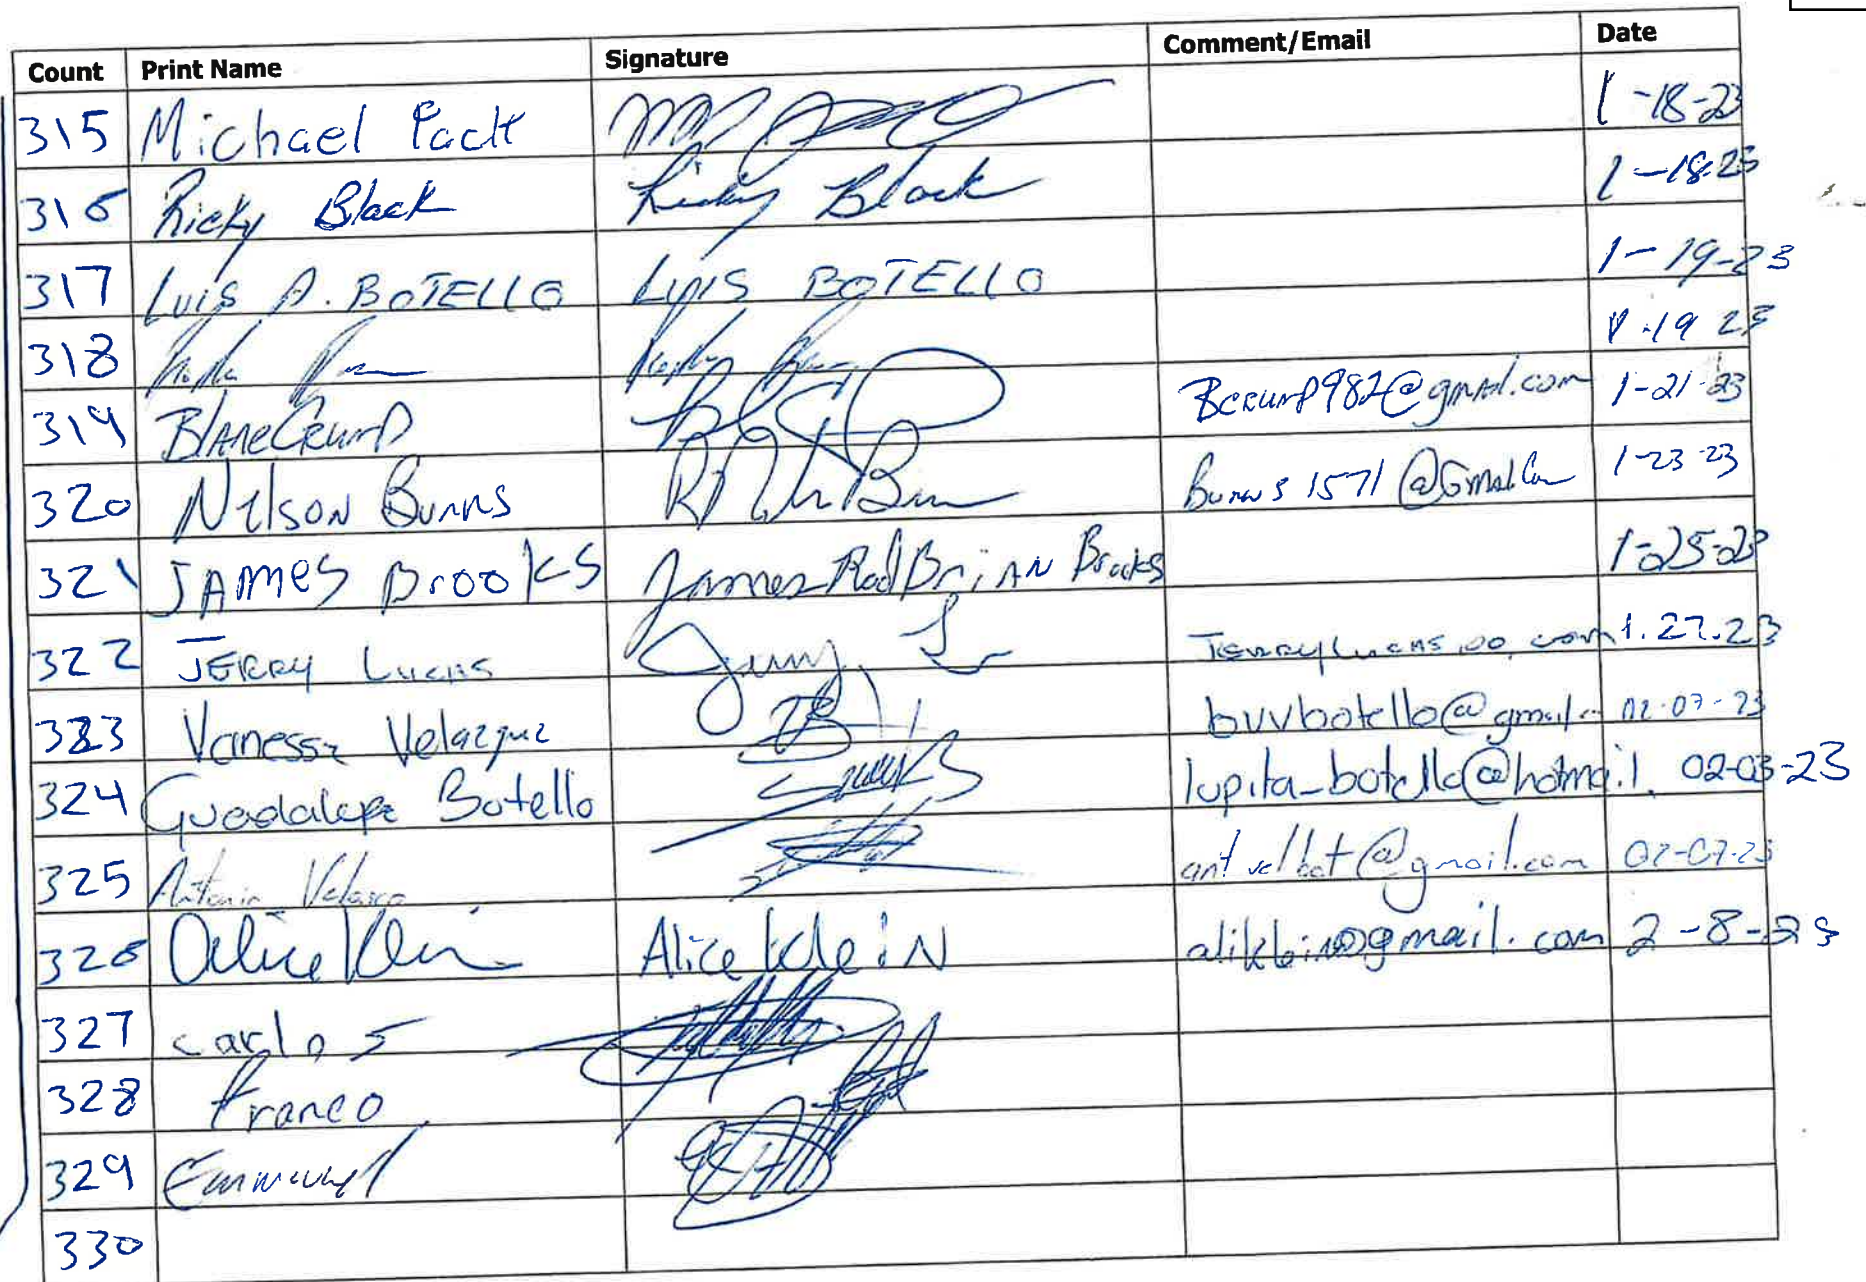 Count Print Name Signature Comment/Email Date
315 Michael Pack 1-18-23
316 Ricky Black Ricky Black 1-18-23
317 Luis A. BOTELLO LUIS BOTELLO 1-19-23
318 1-19 23
319 Blane Crump Bcrump982@gmail.com 1-21-23
320 Nelson Burns Burns1571@Gmail.Com 1-23-23
321 JAMES Brooks James Rod BriAN Brooks 1-25-23
322 JERRY Lucas Jerry L 1.27.23
323 Vanessa Velazquez buvbotello@gmail. 02-07-23
324 Guadalupe Botello lupita_botello@hotmail. 02-03-23
325 Antonio Velasco antvelbot@gmail.com 02-07-23
326 Alice Klein Alice KleiN aliklein@gmail.com 2-8-23
327 carlos
328 Franco
329 Emmanuel
330